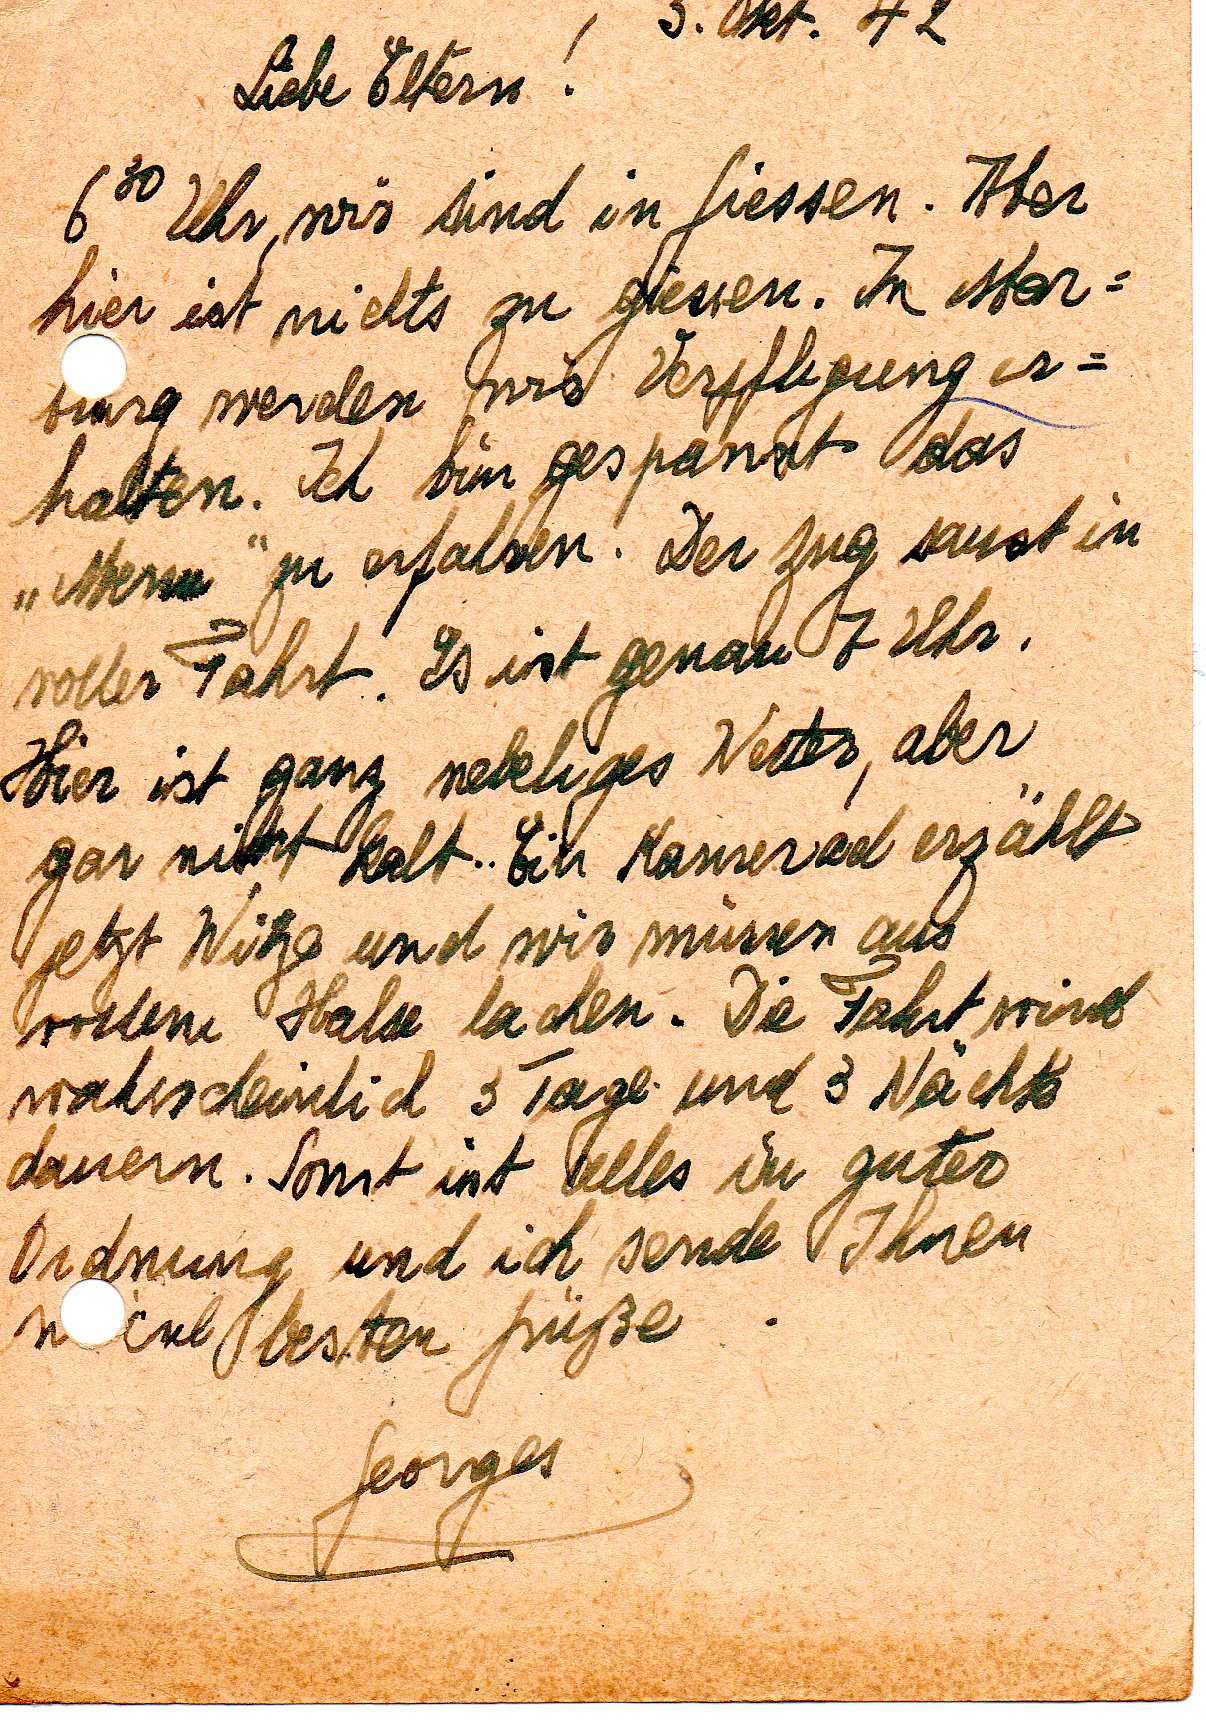 3. Okt. 42
Liebe Eltern!
6³⁰ Uhr, wir sind in Giessen. Aber
hier ist nichts zu giessen. In Mar=
burg werden wir Verpflegung er=
halten. Ich bin gespannt das
„Menu" zu erfahren. Der Zug saust in
voller Fahrt. Es ist genau 7 Uhr.
Hier ist ganz nebeliges Wetter, aber
gar nicht kalt.. Ein Kamerad erzählt
jetzt Witze und wir müssen aus
vollem Halse lachen. Die Fahrt wird
wahrscheinlich 3 Tage und 3 Nächte
dauern. Sonst ist alles in guter
Ordnung und ich sende Ihnen
besten Grüße
Georges